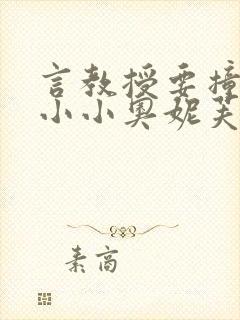 言教授要撞
小小奥妮芙
素高